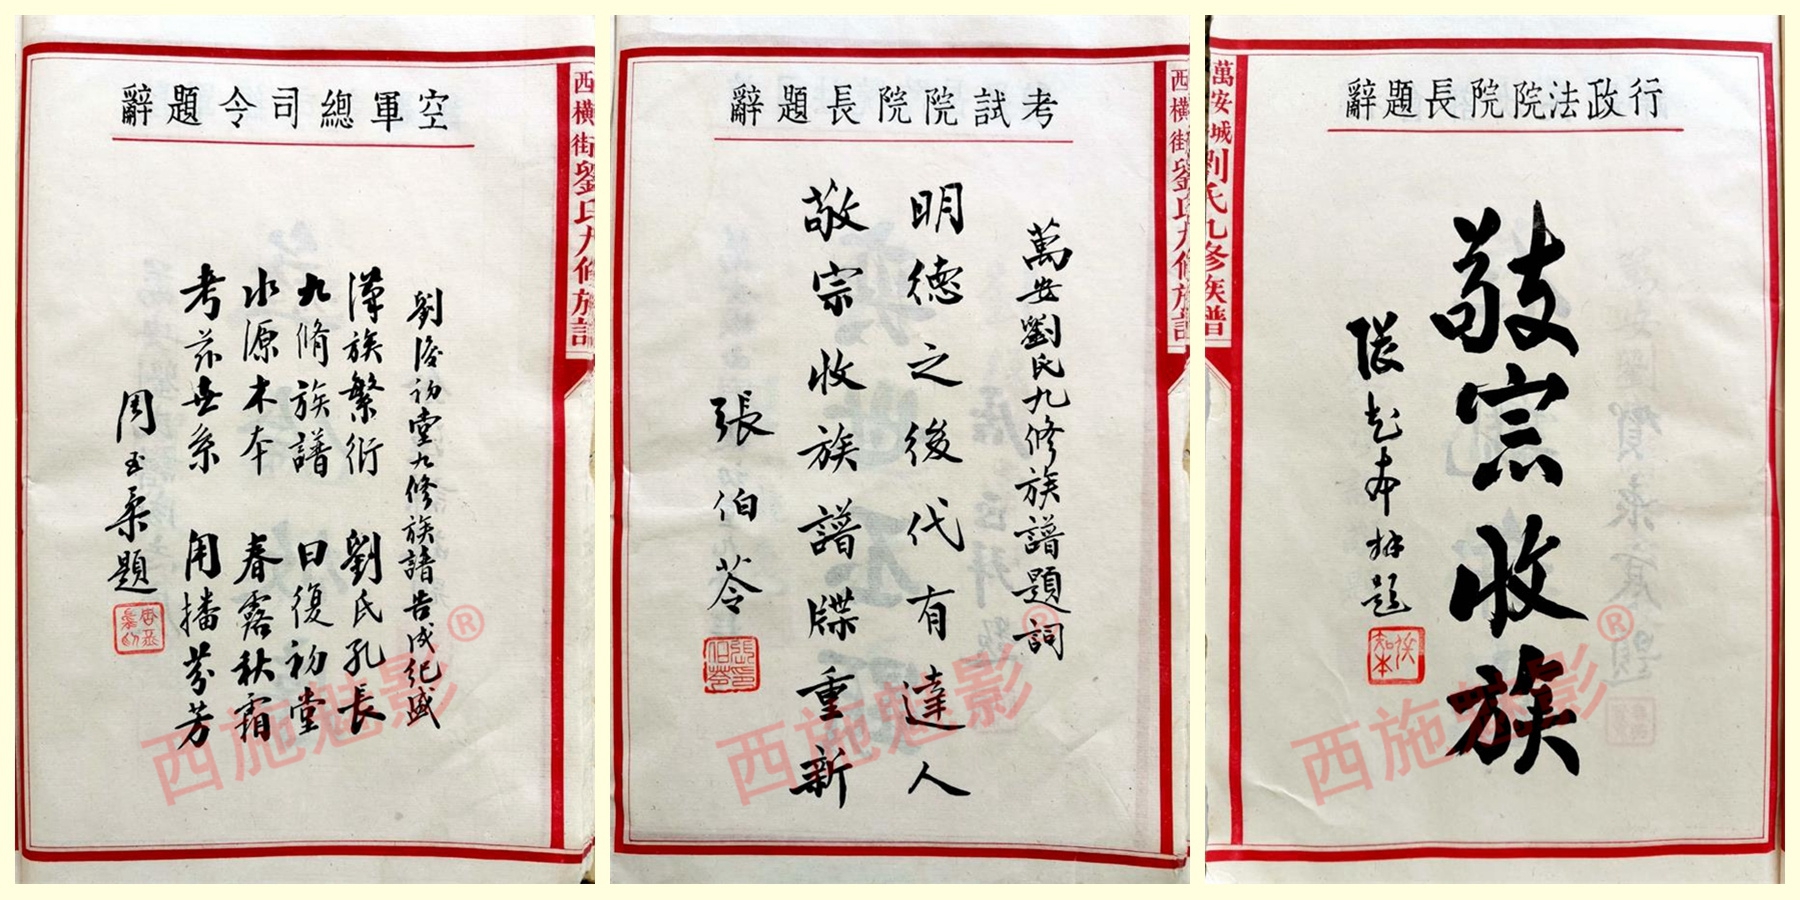 空軍總司令題辭
西橫街劉氏九修族譜
劉復初堂九修族譜告成紀盛
漢族繁衍 劉氏孔長
九脩族譜 曰復初堂
水源木本 春露秋霜
考茲世系 用播芬芳
周至柔題
西施魅影®
考試院院長題辭
西橫街劉氏九修族譜
萬安劉氏九修族譜題詞
明德之後代有達人
敬宗收族譜牒重新
張伯苓
西施魅影®
行政法院院長題辭
萬安城劉氏九修族譜
敬宗收族
張知本拜題
西施魅影®